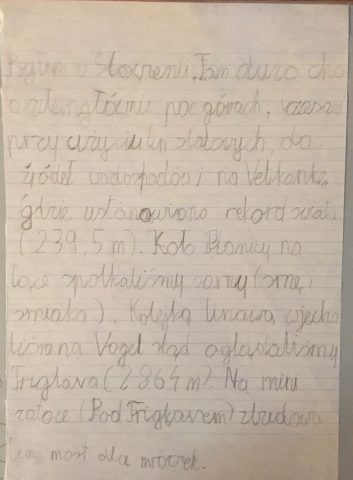 Byłem w Słowenii. Tam dużo cho
dziłem głównie po górach, czasami
przy użyciu lin stalowych, do
źródeł wodospadów i na Velikankę,
gdzie ustanowiono rekord świata
(239,5 m). Koło Planicy na
łące spotkaliśmy sarny (sarnę i
śmiaka). Kolejką linową wjecha
liśmy na Vogel skąd oglądaliśmy
Triglava (2864 m). Na mini
rzece (Pod Triglavem) zbudowa
łem most dla mrówek.